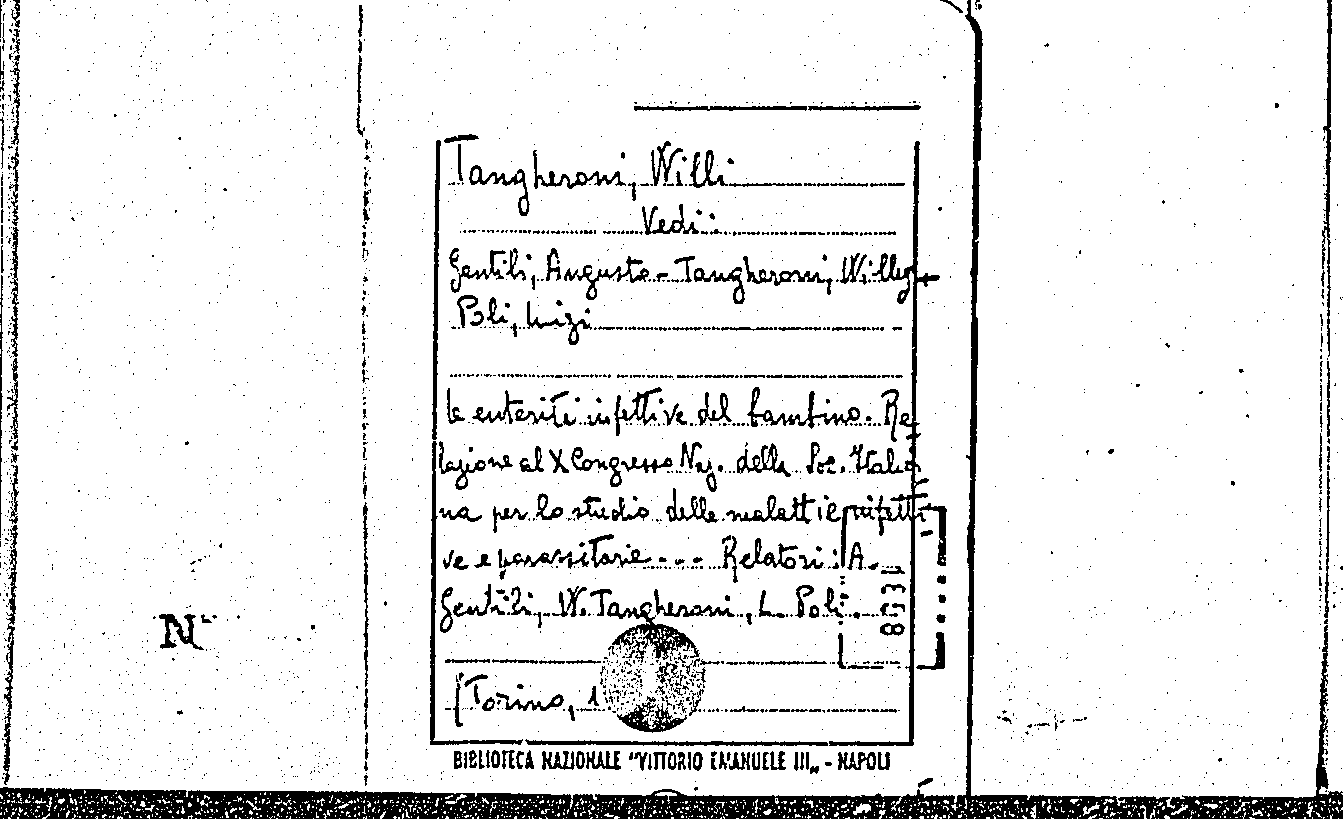 Tangheroni, Willi
Vedi:
Gentili, Augusto - Tangheroni, Willy -
Poli, Luigi
le enteriti infettive del bambino. Re
lazione al X Congresso Naz. della Soc. Italia
na per lo studio delle malattie infetti
ve e parassitarie.... Relatori: A.
Gentili, W. Tangheroni, L. Poli.
(Torino, 1
BIBLIOTECA NAZIONALE "VITTORIO EMANUELE III„ - NAPOLI
N